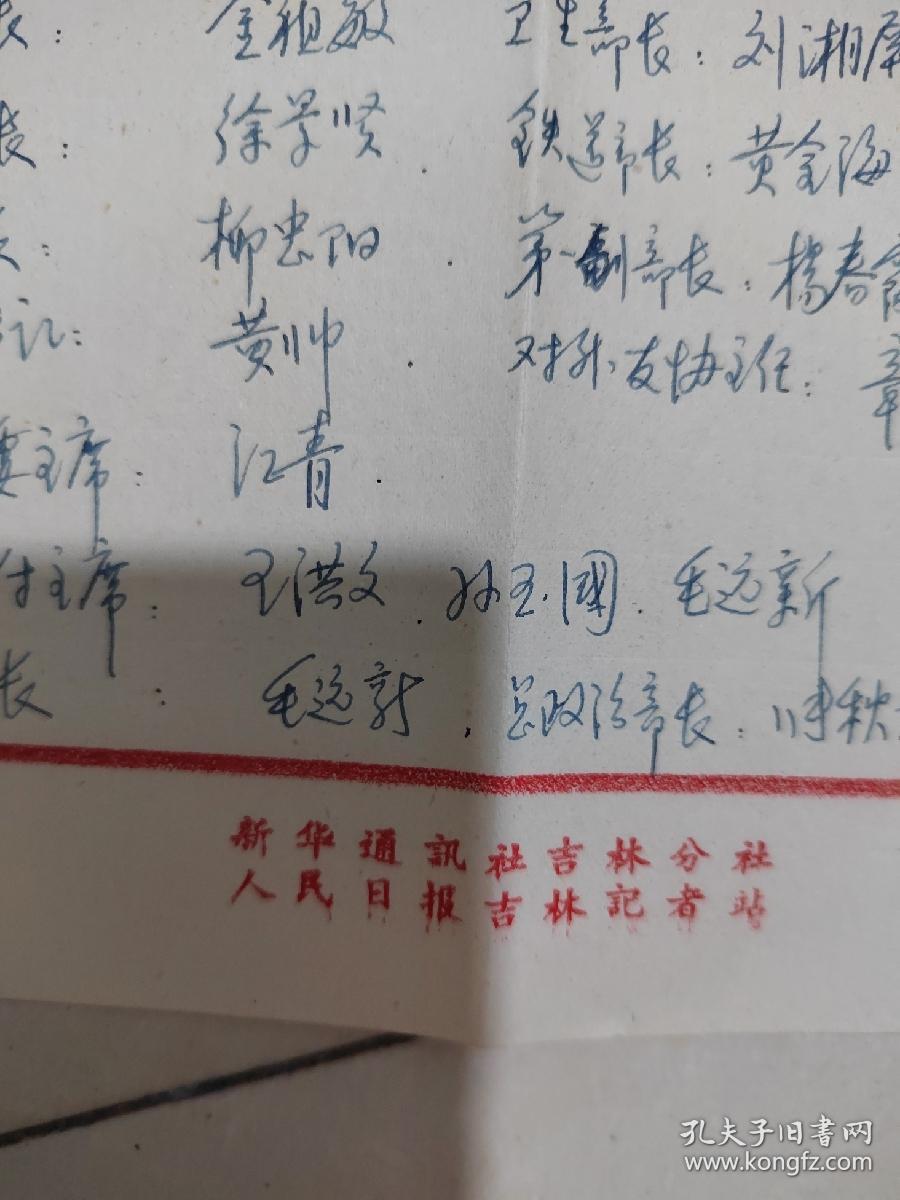 长： 金祖敏 卫生部长：刘湘屏
长： 徐景贤 铁道部长：黄金海
长： 柳忠阳 第一副部长：杨春霞
书记： 黄帅 对外友协主任：章
委主席： 江青
付主席： 王洪文．孙玉國．毛远新
长 ： 毛远新，总政治部长：
新华通訊社吉林分社
人民日报吉林記者站
孔夫子旧书网
www.kongfz.com